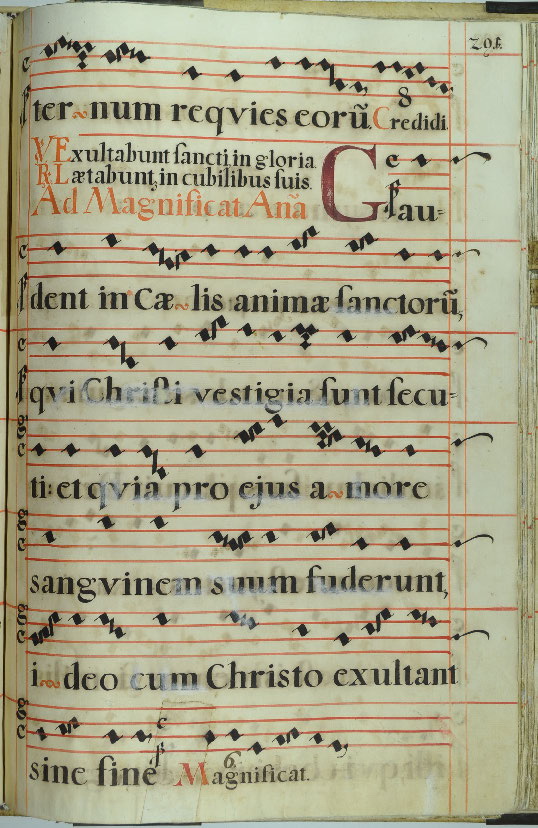 291.
ter~num reqvies eorũ. Credidi.
8
V Exultabunt sancti in gloria
R. Lætabunt, in cubilibus suis.
Ad Magnificat Añã
Gau-
dent in Cæ~lis animæ sanctorũ,
qvi Christi vestigia sunt secu-
ti: et qvia pro ejus a~more
sangvinem suum fuderunt,
i~deo cum Christo exultant
sine fine Magnificat.
6